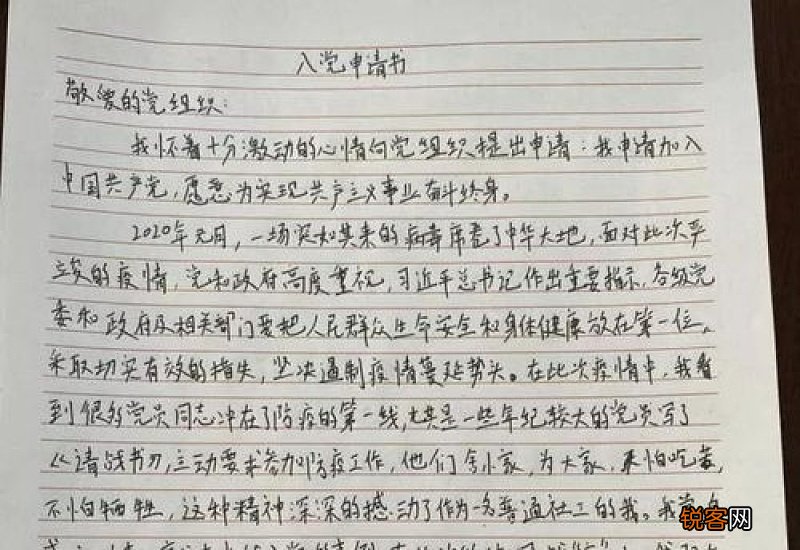 入党申请书
敬爱的党组织：
我怀着十分激动的心情向党组织提出申请：我申请加入
中国共产党，愿意为实现共产主义事业奋斗终身。
2020年元月，一场突如其来的病毒席卷了中华大地，面对此次严
峻的疫情，党和政府高度重视，习近平总书记作出重要指示，各级党
委和政府及相关部门要把人民群众生命安全和身体健康放在第一位，
采取切实有效的措失，坚决遏制疫情蔓延势头。在此次疫情中，我看
到很多党员同志冲在了防疫的第一线，尤其是一些年纪较大的党员写了
《请战书》，主动要求参加防疫工作，他们舍小家，为大家，不怕吃苦，
不怕牺牲，这种精神深深的撼动了作为一名普通社工的我。我
锐客网